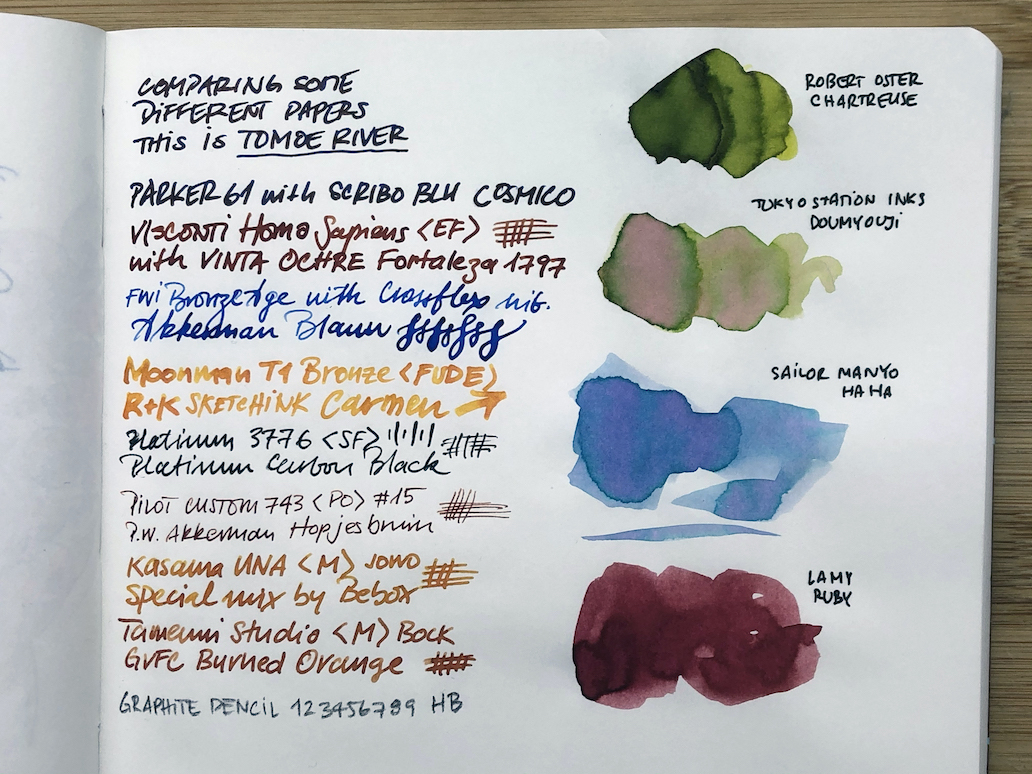 COMPARING SOME
DIFFERENT PAPERS
THIS iS TOMOE RIVER
PARKER 61 with SCRIBO BLU COSMICO
VISCONTI Homo Sapiens <EF>
with VINTA OCHRE Fortaleza 1797
FWI BronzeAge with Crossflex nib.
Akkerman Blauw
Moonman T1 Bronze <FUDE>
R+K SKETCHINK Carmen
Platinum 3776 <SF>
Platinum Carbon Black
PILOT CUSTOM 743 <PO> #15
P.W. Akkerman Hopjesbruin
Kasama UNA <M> JOWO
Special mix by Bebox
Tamenui Studio <M> Bock
GVFC Burned Orange
GRAPHITE PENCIL 123456789 HB
ROBERT OSTER
CHARTREUSE
TOKYO STATION INKS
DOUMYOUJI
SAILOR MANYO
HA HA
LAMY
RUBY